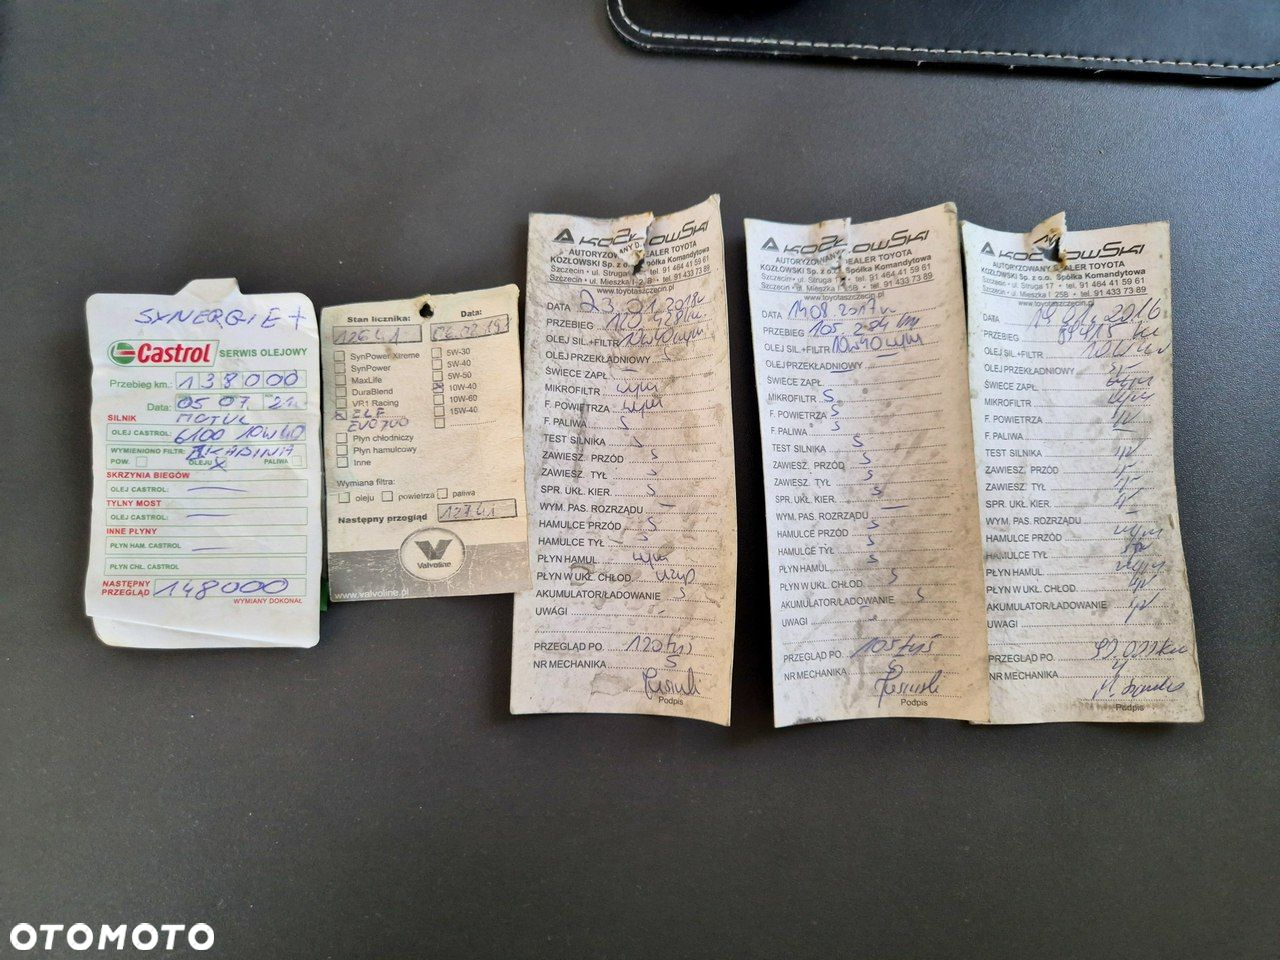 SYNERGIE +
Castrol SERWIS OLEJOWY
Przebieg km.: 138000
Data: 05 07 21r
SILNIK MOTUL
OLEJ CASTROL: 6100 10W40
WYMIENIONO FILTR: KABINA
POW. OLEJU X PALIWA
SKRZYNIA BIEGÓW
OLEJ CASTROL: —
TYLNY MOST
OLEJ CASTROL: —
INNE PŁYNY
PŁYN HAM. CASTROL —
PŁYN CHŁ. CASTROL
NASTĘPNY PRZEGLĄD 148000
WYMIANY DOKONAŁ
Stan licznika: Data:
06.02.19
SynPower Xtreme 5W-30
SynPower 5W-40
MaxLife 5W-50
DuraBlend x 10W-40
VR1 Racing 10W-60
x ELF 15W-40
EVO700
Płyn chłodniczy
Płyn hamulcowy
Inne
Wymiana filtra:
oleju powietrza paliwa
Następny przegląd
Valvoline
www.valvoline.pl
KOZŁOWSKI
AUTORYZOWANY DEALER TOYOTA
KOZŁOWSKI Sp. z o.o. Spółka Komandytowa
Szczecin • ul. Struga 17 • tel. 91 464 41 59 61
Szczecin • ul. Mieszka I 25B • tel. 91 433 73 89
www.toyotaszczecin.pl
DATA 23.01.2018r
PRZEBIEG
OLEJ SIL.+FILTR 10w40 wym
OLEJ PRZEKŁADNIOWY
ŚWIECE ZAPŁ.
MIKROFILTR wym
F. POWIETRZA wym
F. PALIWA S
TEST SILNIKA S
ZAWIESZ. PRZÓD S
ZAWIESZ. TYŁ S
SPR. UKŁ. KIER. S
WYM. PAS. ROZRZĄDU —
HAMULCE PRZÓD S
HAMULCE TYŁ S
PŁYN HAMUL. wym
PŁYN W UKŁ. CHŁOD. uzup
AKUMULATOR/ŁADOWANIE S
UWAGI —
PRZEGLĄD PO 120 tyś
NR MECHANIKA 5
Podpis
KOZŁOWSKI
AUTORYZOWANY DEALER TOYOTA
KOZŁOWSKI Sp. z o.o. Spółka Komandytowa
Szczecin • ul. Struga 17 • tel. 91 464 41 59 61
Szczecin • ul. Mieszka I 25B • tel. 91 433 73 89
www.toyotaszczecin.pl
DATA 14 08 2017r.
PRZEBIEG 105 284 km
OLEJ SIL.+FILTR 10w40 wym
OLEJ PRZEKŁADNIOWY —
ŚWIECE ZAPŁ.
MIKROFILTR S
F. POWIETRZA S
F. PALIWA S
TEST SILNIKA S
ZAWIESZ. PRZÓD S
ZAWIESZ. TYŁ S
SPR. UKŁ. KIER. S
WYM. PAS. ROZRZĄDU —
HAMULCE PRZÓD S
HAMULCE TYŁ S
PŁYN HAMUL. S
PŁYN W UKŁ. CHŁOD. S
AKUMULATOR/ŁADOWANIE S
UWAGI —
PRZEGLĄD PO 105 tyś
NR MECHANIKA
Podpis
KOZŁOWSKI
AUTORYZOWANY DEALER TOYOTA
KOZŁOWSKI Sp. z o.o. Spółka Komandytowa
Szczecin • ul. Struga 17 • tel. 91 464 41 59 61
Szczecin • ul. Mieszka I 25B • tel. 91 433 73 89
www.toyotaszczecin.pl
DATA 19.01.2016
PRZEBIEG
OLEJ SIL.+FILTR
OLEJ PRZEKŁADNIOWY
ŚWIECE ZAPŁ. wym
MIKROFILTR wym
F. POWIETRZA
F. PALIWA
TEST SILNIKA
ZAWIESZ. PRZÓD
ZAWIESZ. TYŁ
SPR. UKŁ. KIER.
WYM. PAS. ROZRZĄDU
HAMULCE PRZÓD wym
HAMULCE TYŁ
PŁYN HAMUL. wym
PŁYN W UKŁ. CHŁOD.
AKUMULATOR/ŁADOWANIE
UWAGI
PRZEGLĄD PO
NR MECHANIKA 4
Podpis
OTOMOTO